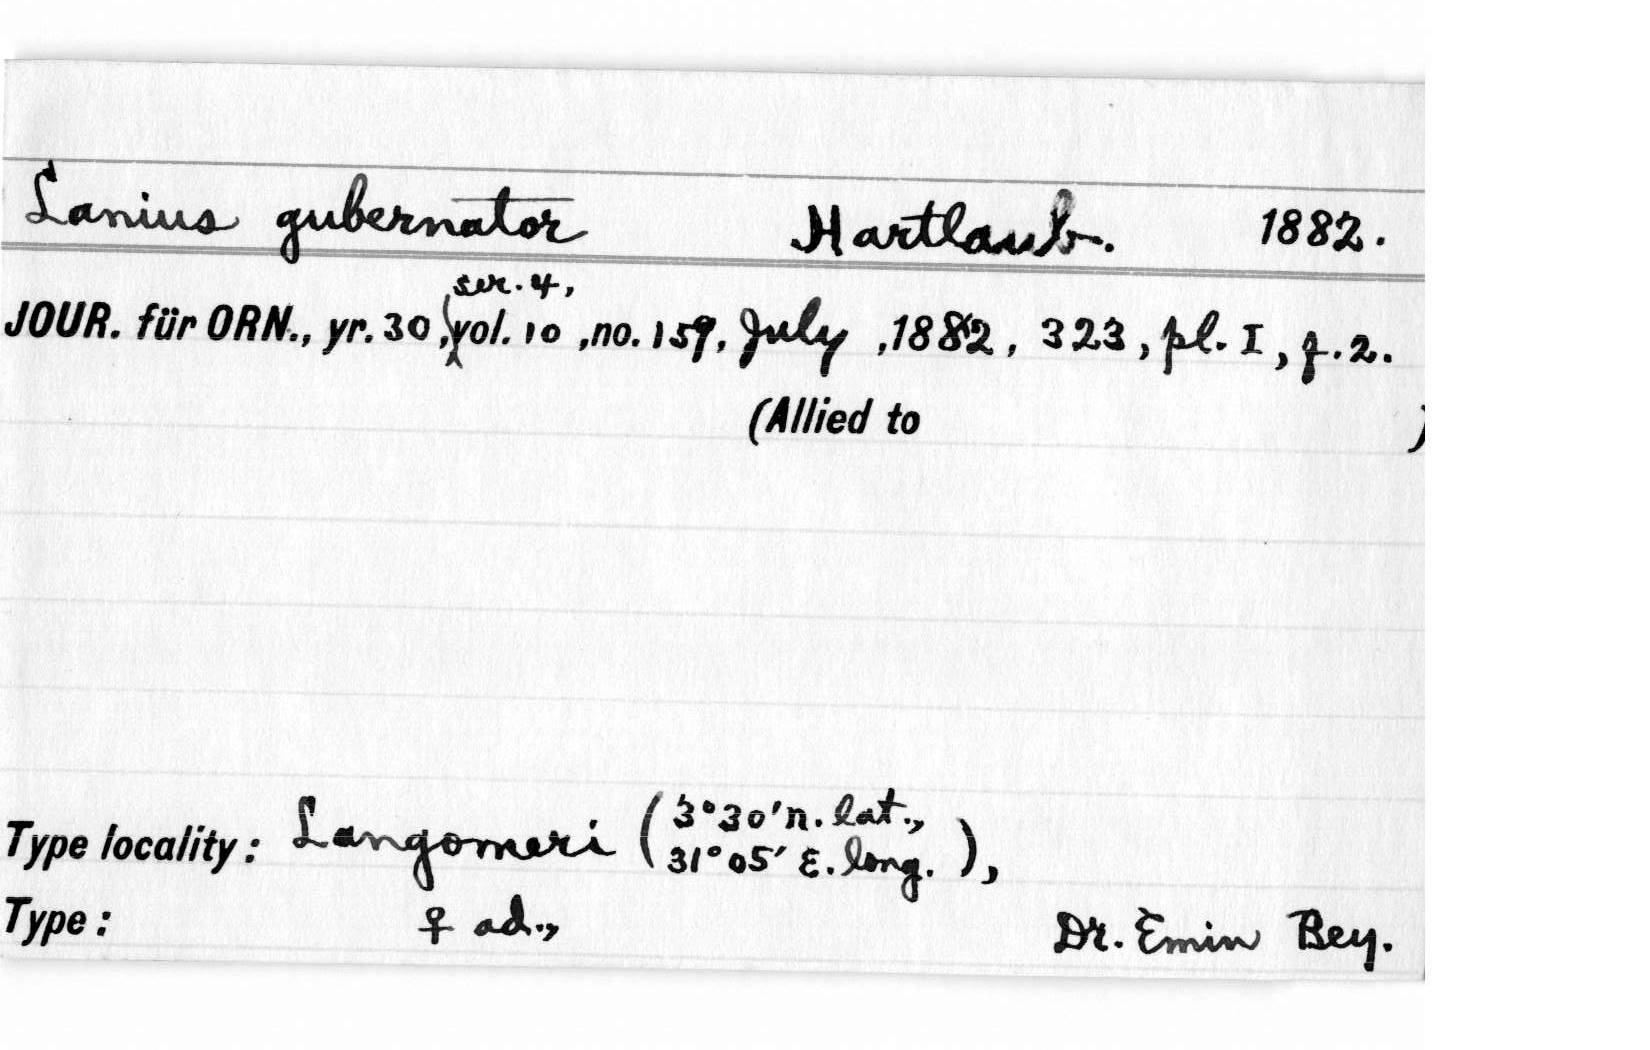 Lanius gubernator Hartlaub. 1882.
ser. 4,
JOUR. für ORN., yr. 30, vol. 10, no. 159, July, 1882, 323, pl. I, f. 2.
(Allied to )
Type locality: Langomeri (3°30' n. lat., 31°05' E. long.),
Type: ♀ ad., Dr. Emin Bey.